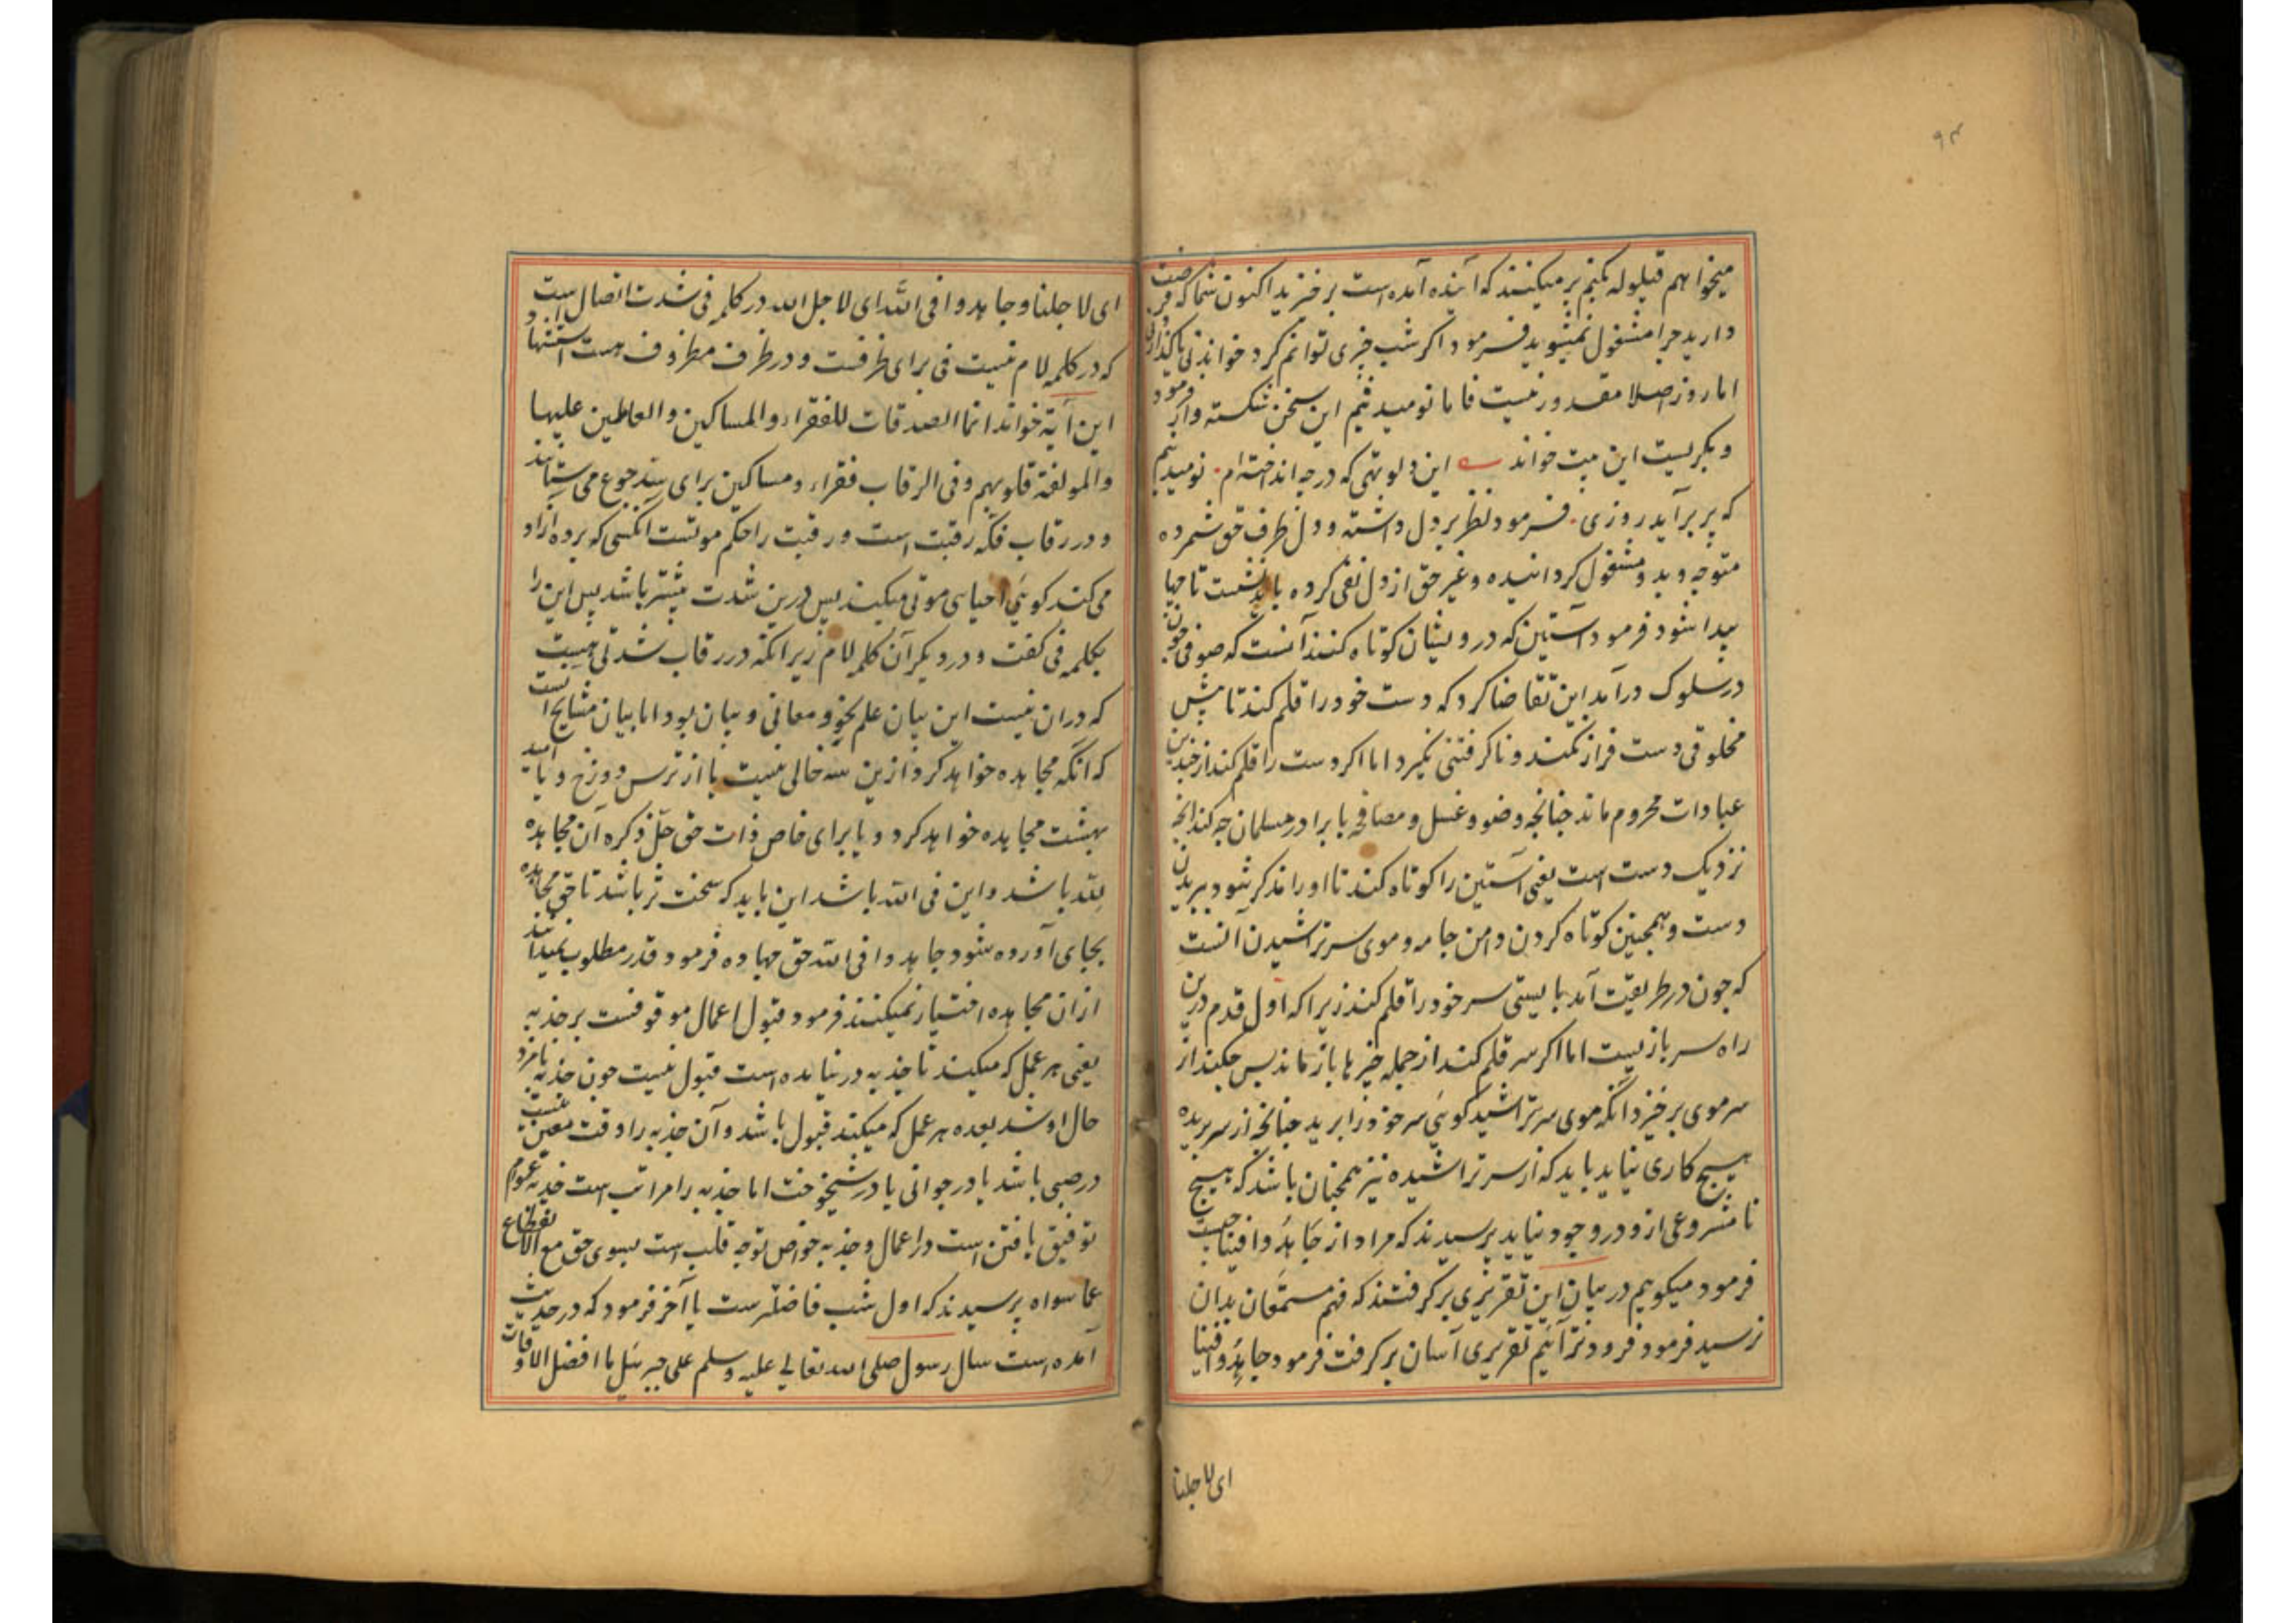 ۹۳
میخواهم قیلوله بکنم بر میکنند که آینده آمده است برخیزید اکنون شما که فرصت
دارید چرا مشغول نمیشوید فرمود اگر شب چیزی توانم کرد خواندنی یا گذاردن
اما روز اصلا مقدور نیست فاما نومید نیم این سخن شکسته وار فرمود
و بگریست این بیت خواند این دلو تهی که در چه انداخته‌ام نومید نیم
که پر برآید روزی فرمود نظر بر دل داشته و دل طرف حق شمرده
متوجه وبدو مشغول گردانیده و غیر حق از دل نفی کرده باید نشست تا چها
پیدا شود فرمود آستین که درویشان کوتاه کنند آنست که صوفی چون
در سلوک درآمد این تقاضا کرد که دست خود را قلم کند تا پیش
مخلوقی دست فراز نکند و ناگرفتنی نگیرد اما اگر دست را قلم کند از چندین
عبادات محروم ماند چنانچه وضو و غسل و مصافحه با برادر مسلمان چه کند آنچه
نزدیک دست است یعنی آستین را کوتاه کند تا او را مذکر شود ببریدن
دست و همچنین کوتاه کردن دامن جامه و موی سر تراشیدن آنست
که چون در طریقت آمد بایستی سر خود را قلم کند زیرا که اول قدم درین
راه سر بازیست اما اگر سر قلم کند از جمله چیزها باز ماند پس چکند از
سر موی برخیزد آنکه موی سر تراشید گوئی سر خود را برید چنانچه از سر بریده
هیچ کاری نیاید باید که از سر تراشیده نیز همچنان باشد که هیچ
نا مشروعی ازو در وجود نیاید پرسیدند که مراد از جاهدوا فینا چیست
فرمود میگویم در بیان این تقریری برگرفتند که فهم مستمعان بدان
نرسید فرمود فرود تر آئیم تقریری آسان برگرفت فرمود جاهدوا فینا
ای لاجلنا
ای لاجلنا و جاهدوا فی الله ای لاجل الله در کلمه فی شدت اتصال است
که در کلمه لام نیست فی برای ظرفست و در ظرف مظروف هست
این آیة خواند انما الصدقات للفقراء والمساکین والعاملین علیها
والمؤلفة قلوبهم وفی الرقاب فقراء و مساکین برای سد جوع می ستانند
و در رقاب فک رقبت است و رقبت را حکم موتست آنکسی که برده آزاد
می کند گوئی احیای موتی میکند پس درین شدت بیشتر باشد پس این را
بکلمه فی گفت و در دیگر آن کلمه لام زیرا نکه در رقاب شدتی هست
که در ان نیست این بیان علم نحو و معانی و بیان بود اما بیان مشایخ است
که آنکه مجاهده خواهد کرد ازین سه خالی نیست یا از ترس دوزخ و یا امید
بهشت مجاهده خواهد کرد و یا برای خاص ذات حق جل ذکره آن مجاهده
لله باشد و این فی الله باشد این باید که سخت تر باشد تا حق مجاهده
بجای آورده شود جاهدوا فی الله حق جهاده فرمود قدر مطلوب نمیدانند
ازان مجاهده اختیار نمیکنند فرمود قبول اعمال موقوفست بر جذبه
یعنی هر عمل که میکند تا جذبه در نیامده است قبول نیست چون جذبه نامزد
حال او شد بعده هر عمل که میکند قبول باشد و آن جذبه را وقت معین نیست
در صبی باشد یا در جوانی یا در شیخوخت اما جذبه را مراتب است جذبه عوام
توفیق یافتن است در اعمال و جذبه خواص توجه قلب است بسوی حق مع الانقطاع
عما سواه پرسیدند که اول شب فاضلترست یا آخر فرمود که در حدیث
آمده است سال رسول صلی الله تعالی علیه وسلم علی جبرئیل ما افضل الاوقات